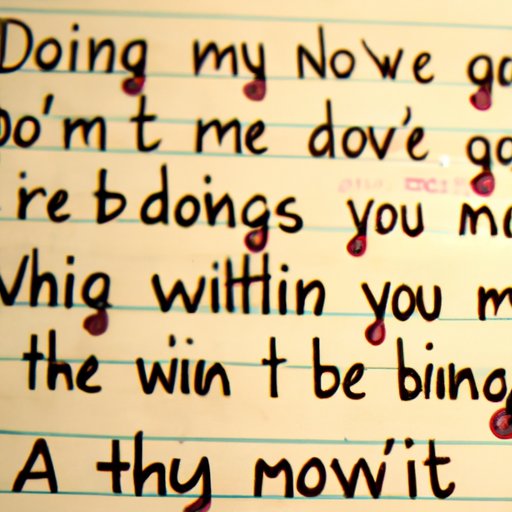 Doing my Nowe go
Do'm t me dov'e go
ire b doings you mo
Whig witthin you m
the win t be biing
A thy mow'it